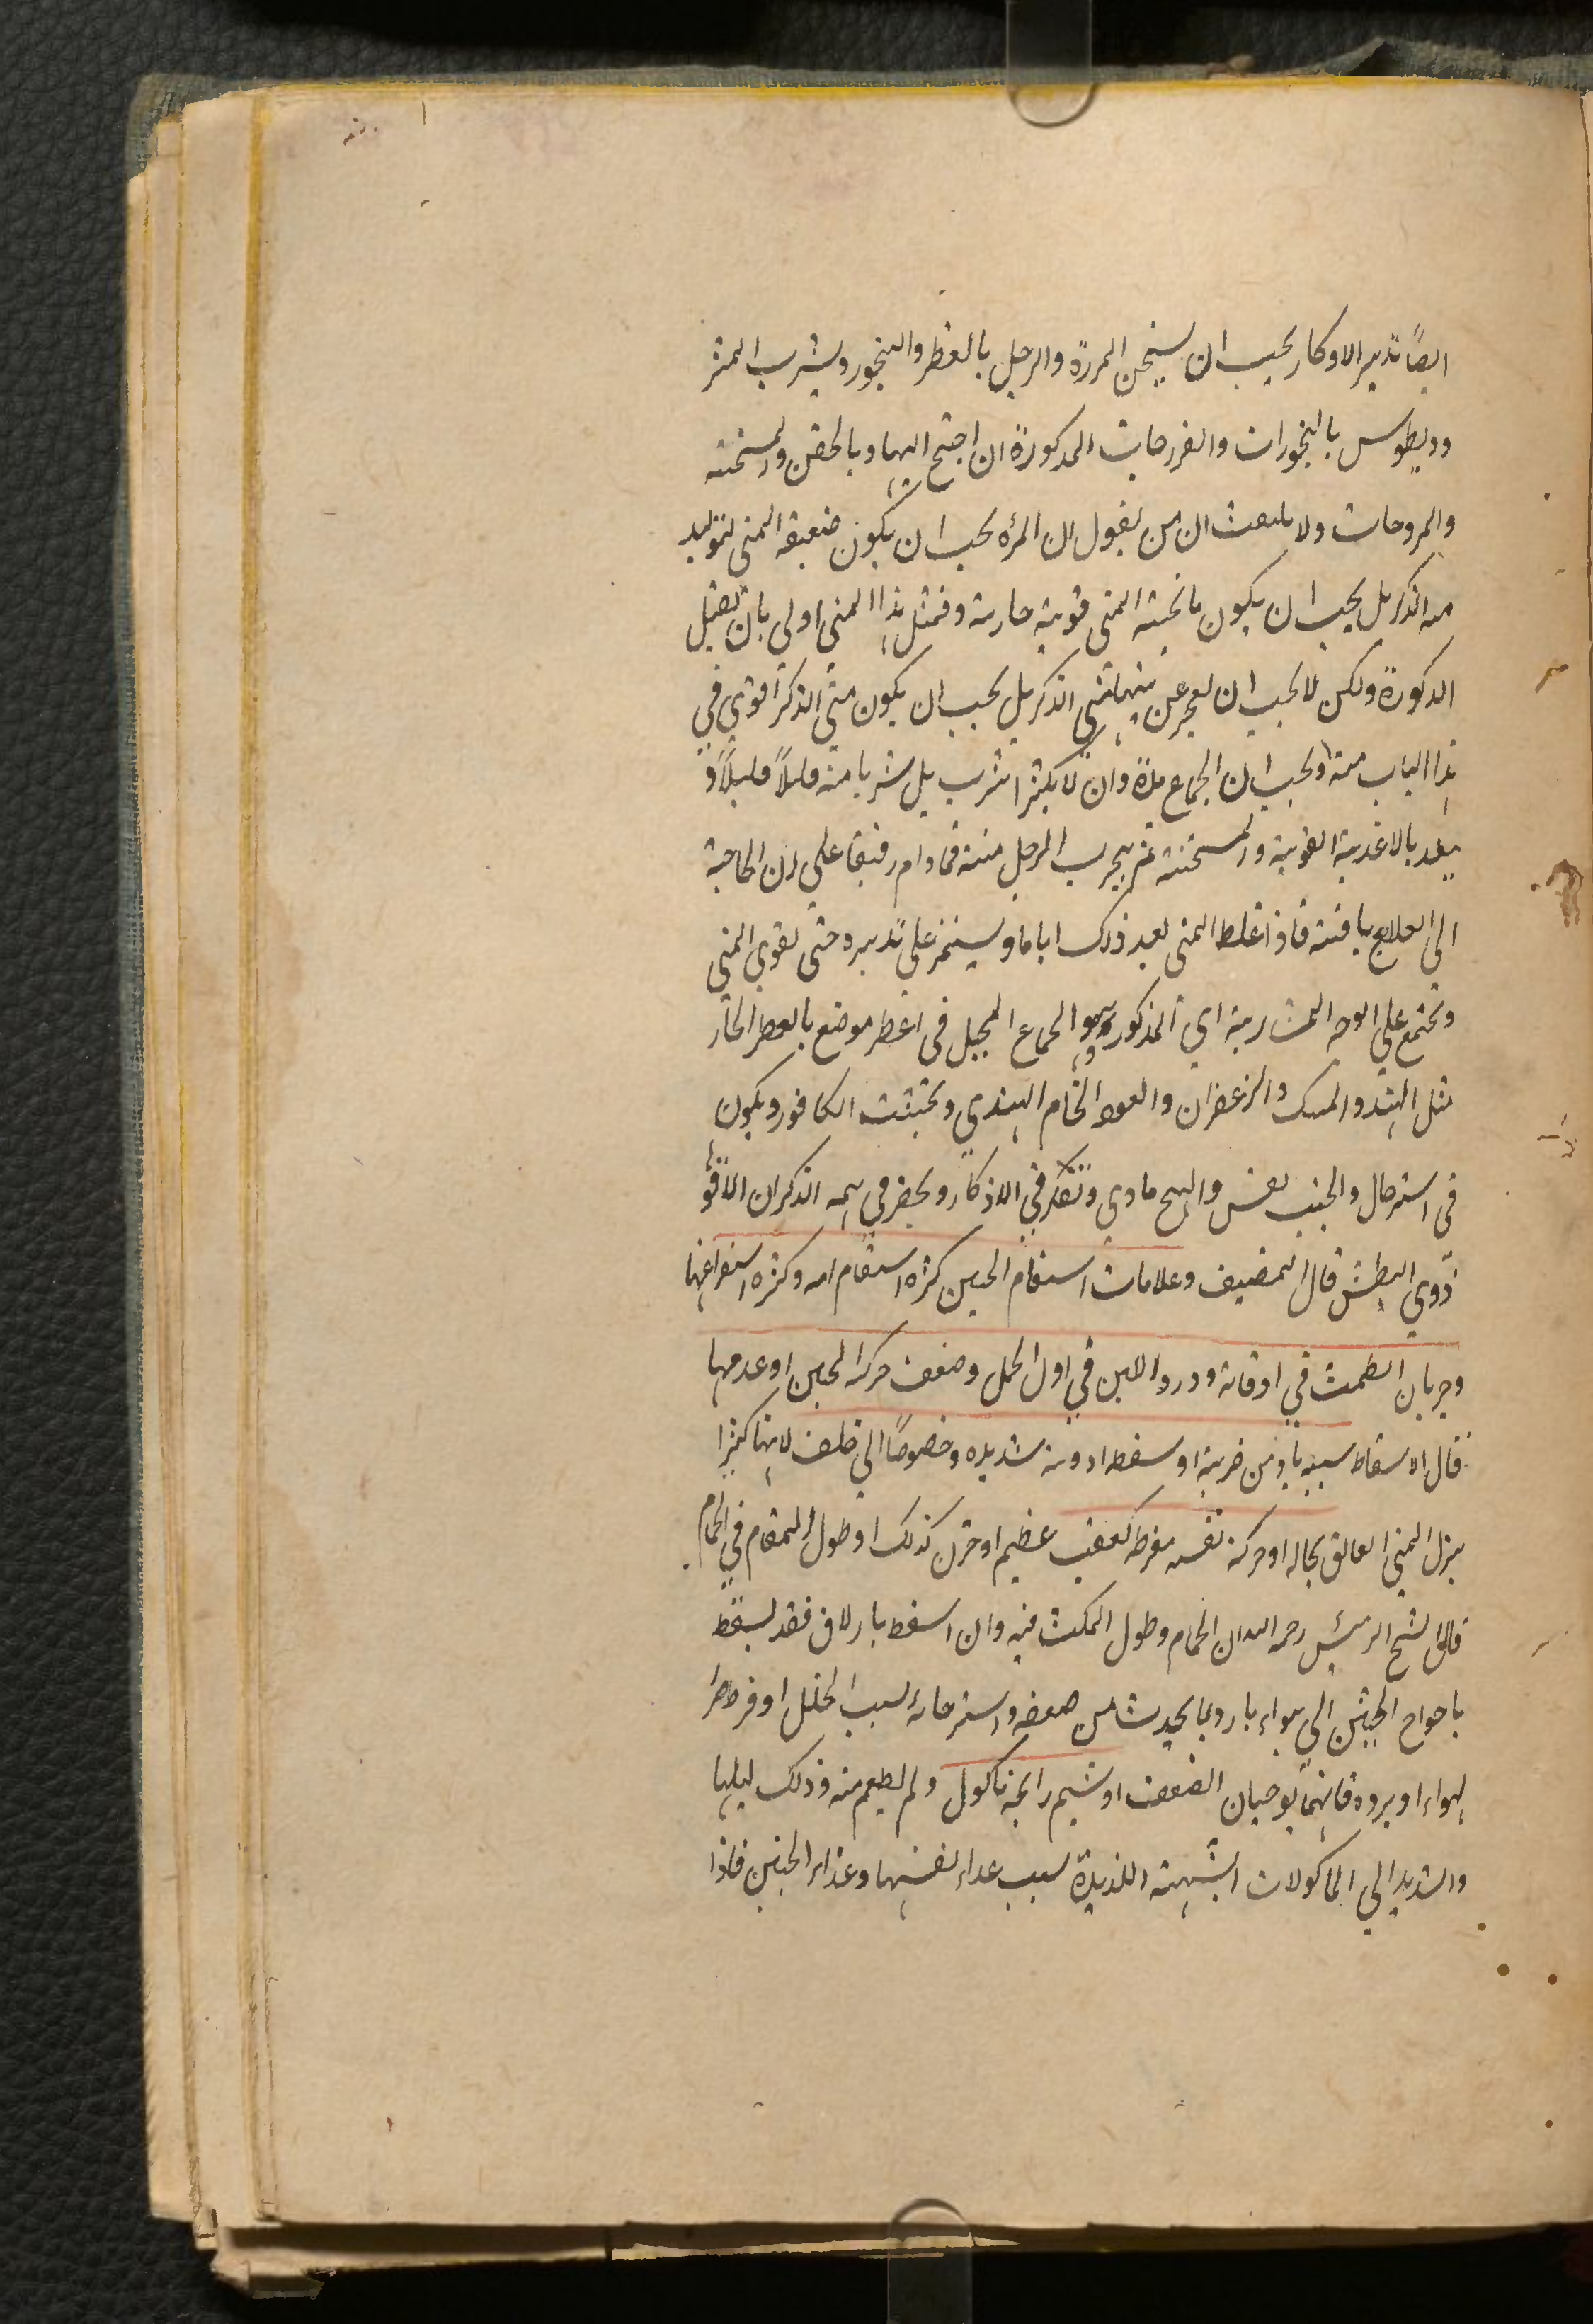 ایضًا تدبیر الاوکار یجب ان یسخن المرءة والرجل بالعطر والبخور ویشرب المثر
ودیطوس بالبخورات والفرزجات المذکورة ان احتیج الیها وبالحقن والمسخنة
والمروحات ولا یلتفت الی من یقول ان المرءه یجب ان یکون ضعیفه المنی لتولید
منه الذکر بل یجب ان یکون ما نحیته المنی قویة حاریة وفمثل هذا المنی اولی بان یقبل
الذکورة ولکن لا یجب ان یعجز عن منیها منی الذکر بل یجب ان یکون منی الذکر اقوی فی
هذا الباب منه ویجب ان الجماع مدة وان لا یکثر الشرب بل یشربا منه قلیلاً قلیلاً و
یغذ بالاغذیة القویة والمسخنة ثم یجرب الرجل منیه فمادام رقیقا علم ان الحاجة
الی العلاج باقیة فاذا غلظ المنی بعد ذلک ایاما ویستمر علی تدبیره حتی یقوی المنی
ویجتمع علی الوجه المشار الیه ای المذکور وهو الجماع المجبل فی اعطر موضع بالعطر الحار
مثل الند والمسک والزعفران والعود الخام الهندی ویجتنب الکافور ویکون
فی استرحال والجنب نفس وابهج مادی وتفکر فی الاذکار ویحضر فی همه الذکران الاقوّ
ذوی البطش قال المصنف وعلامات اسقام الجنین کثره اسقام امه وکثره استفراغها
وجریان الطمث فی اوقاته ودرور اللبن فی اول الحمل وضعف حرکة الجنین او عدمها
قال الاسقاط سببه باد من ضربة او سقطه او وثبة شدیده وخصوصًا الی خلف لانها کثیرا
ینزل المنی العالق بحاله او حرکة نفسه مفرطه کغضب عظیم او حزن کذلک او طول المقام فی الحمام
قال الشیخ الرئیس رحمه الله ان الحمام وطول المکث فیه وان اسقط بازلاق فقد یسقط
باحواج الجنین الی هواء بارد وبما یحدث من ضعفه واسترخائه بسبب الخلل او فرط حر
الهواء او برده فانهما یوجبان الضعف او شم رایحة ماکول ولم یطعم منه وذلک لیلها
والشدید الی الماکولات الشهیة اللذیذة بسبب غذاء نفسها وغذاء الجنین فاذا